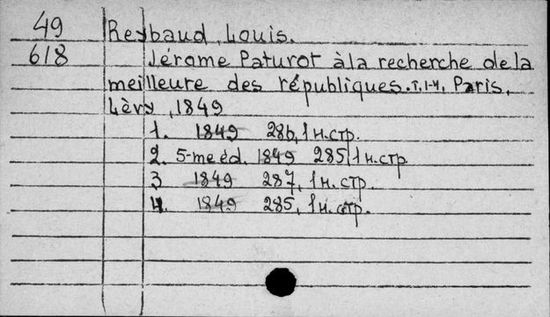 49 Reybaud, Louis.
618 Jérome Paturot à la recherche de la
meilleure des républiques. T. 1-4, Paris,
Lèvy, 1849
1. 1849 286, 1 н. стр.
2. 5-me éd. 1849 285, 1 н. стр
3 1849 287, 1 н. стр.
4. 1849 285, 1 н. стр.